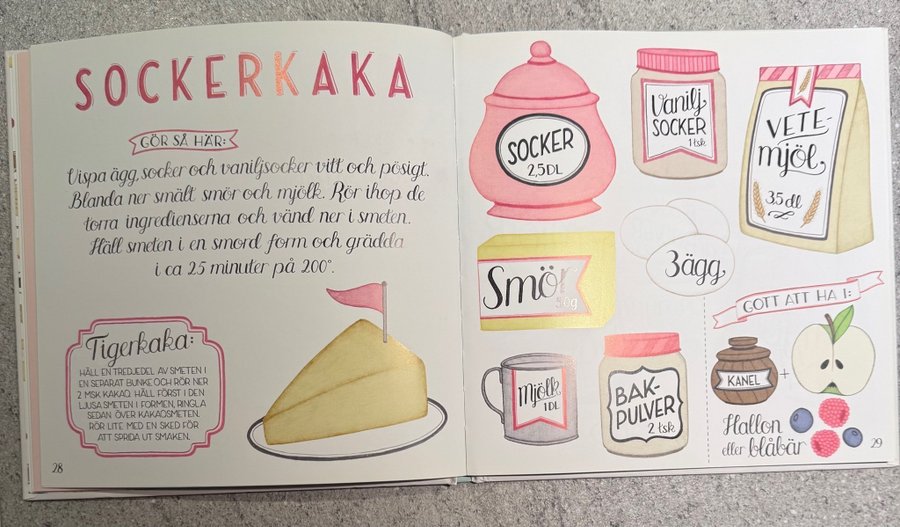 SOCKERKAKA
GÖR SÅ HÄR:
Vispa ägg, socker och vaniljsocker vitt och pösigt.
Blanda ner smält smör och mjölk. Rör ihop de
torra ingredienserna och vänd ner i smeten.
Häll smeten i en smord form och grädda
i ca 25 minuter på 200°.
Tigerkaka:
HÄLL EN TREDJEDEL AV SMETEN I
EN SEPARAT BUNKE OCH RÖR NER
2 MSK KAKAO. HÄLL FÖRST I DEN
LJUSA SMETEN I FORMEN, RINGLA
SEDAN ÖVER KAKAOSMETEN.
RÖR LITE MED EN SKED FÖR
ATT SPRIDA UT SMAKEN.
28
SOCKER
2,5 DL
Vanilj
SOCKER
1 tsk
VETE-
mjöl
3,5 dl
Smör
50g
3 ägg
Mjölk
1 DL
BAK-
PULVER
2 tsk
GOTT ATT HA I:
KANEL
+
Hallon
eller blåbär
29